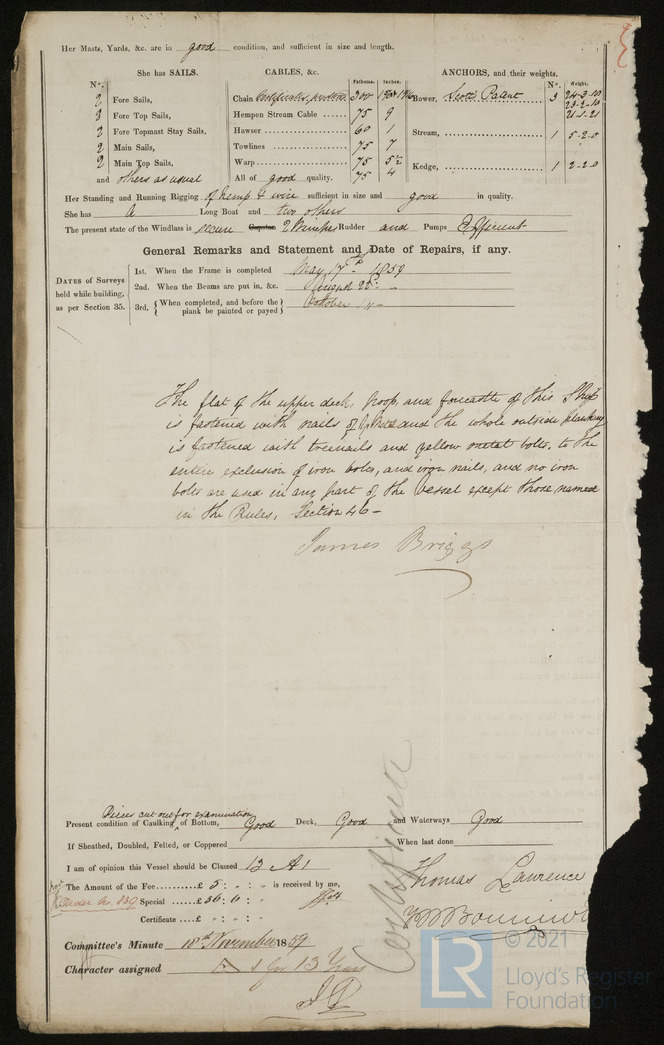 Her Masts, Yards, &c. are in good condition, and sufficient in size and length.
She has SAILS.
N°.
2 Fore Sails,
2 Fore Top Sails,
2 Fore Topmast Stay Sails,
2 Main Sails,
2 Main Top Sails,
and others as usual
CABLES, &c.
Fathoms. Inches.
Chain Certificates 300
Hempen Stream Cable ...... 75 9
Hawser ............ 60 1
Towlines ............ 75 7
Warp ............ 75 5½
All of good quality. 75 4
ANCHORS, and their weights.
N°. Weight.
Bower, 3 24-3-10
23-2-10
21-1-21
Stream, ............ 1 5-2-0
Kedge, ............ 1 2-2-0
Her Standing and Running Rigging of hemp & wire sufficient in size and good in quality.
She has A Long Boat and two others
The present state of the Windlass is secure Capstan 2 Rudder and Pumps Efficient
General Remarks and Statement and Date of Repairs, if any.
DATES of Surveys held while building, as per Section 35.
1st. When the Frame is completed May 17th 1859
2nd. When the Beams are put in, &c. August 22 -
3rd. {When completed, and before the plank be painted or payed} October
The flat of the upper deck, poop, and forecastle of this Ship
is fastened with nails of and the whole outside planking
is fastened with treenails and yellow metal bolts, to the
entire exclusion of iron bolts, and iron nails, and no iron
bolts are used in any part of the Vessel except those named
in the Rules, Section 46-
James Briggs
Pieces cut out for examination
Present condition of Caulking of Bottom, Good Deck, Good and Waterways Good
If Sheathed, Doubled, Felted, or Coppered When last done
I am of opinion this Vessel should be Classed 13 A1
The Amount of the Fee.........£ 5 : - : - is received by me,
Special ......£ 36 : 0 : -
Certificate ....£ - : - : -
Thomas Lawrence
Committee's Minute 18th November 1859
Character assigned A 1 for 13 Years
LR
© 2021
Lloyd's Register
Foundation